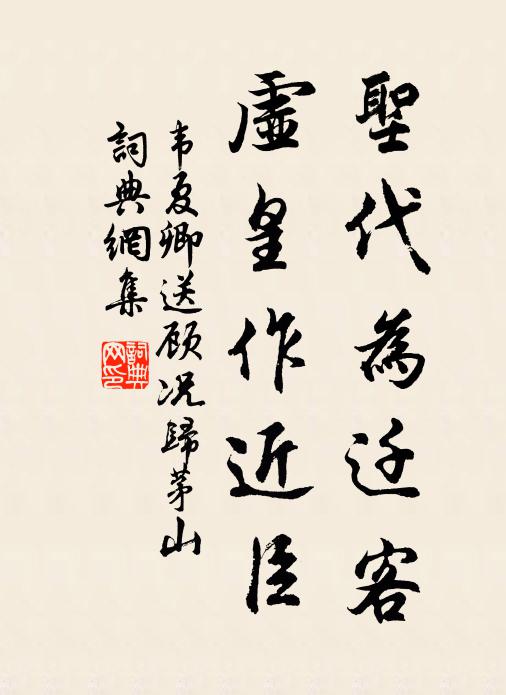 聖代為迁客
虛皇作近臣
韦夏卿送顾况歸茅山
詞典網集
詞典
网印